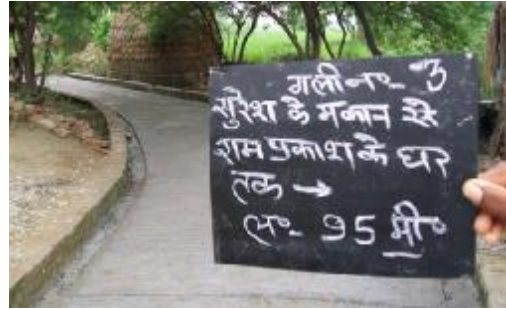 गली न०- 3
सुरेश के मकान से
राम प्रकाश के घर
तक →
ल०- 95 मी०